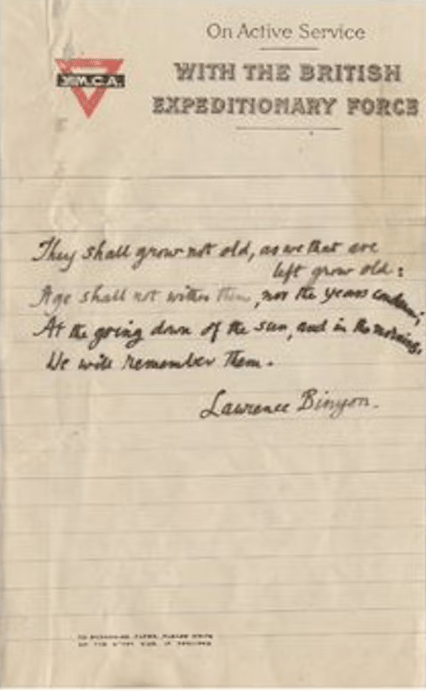 On Active Service
WITH THE BRITISH
EXPEDITIONARY FORCE
Y.M.C.A.
They shall grow not old, as we that are
left grow old:
Age shall not wither them, nor the years condemn;
At the going down of the sun, and in the morning,
We will remember them.
Lawrence Binyon.
TO ECONOMISE PAPER, PLEASE WRITE
ON THE OTHER SIDE, IF REQUIRED